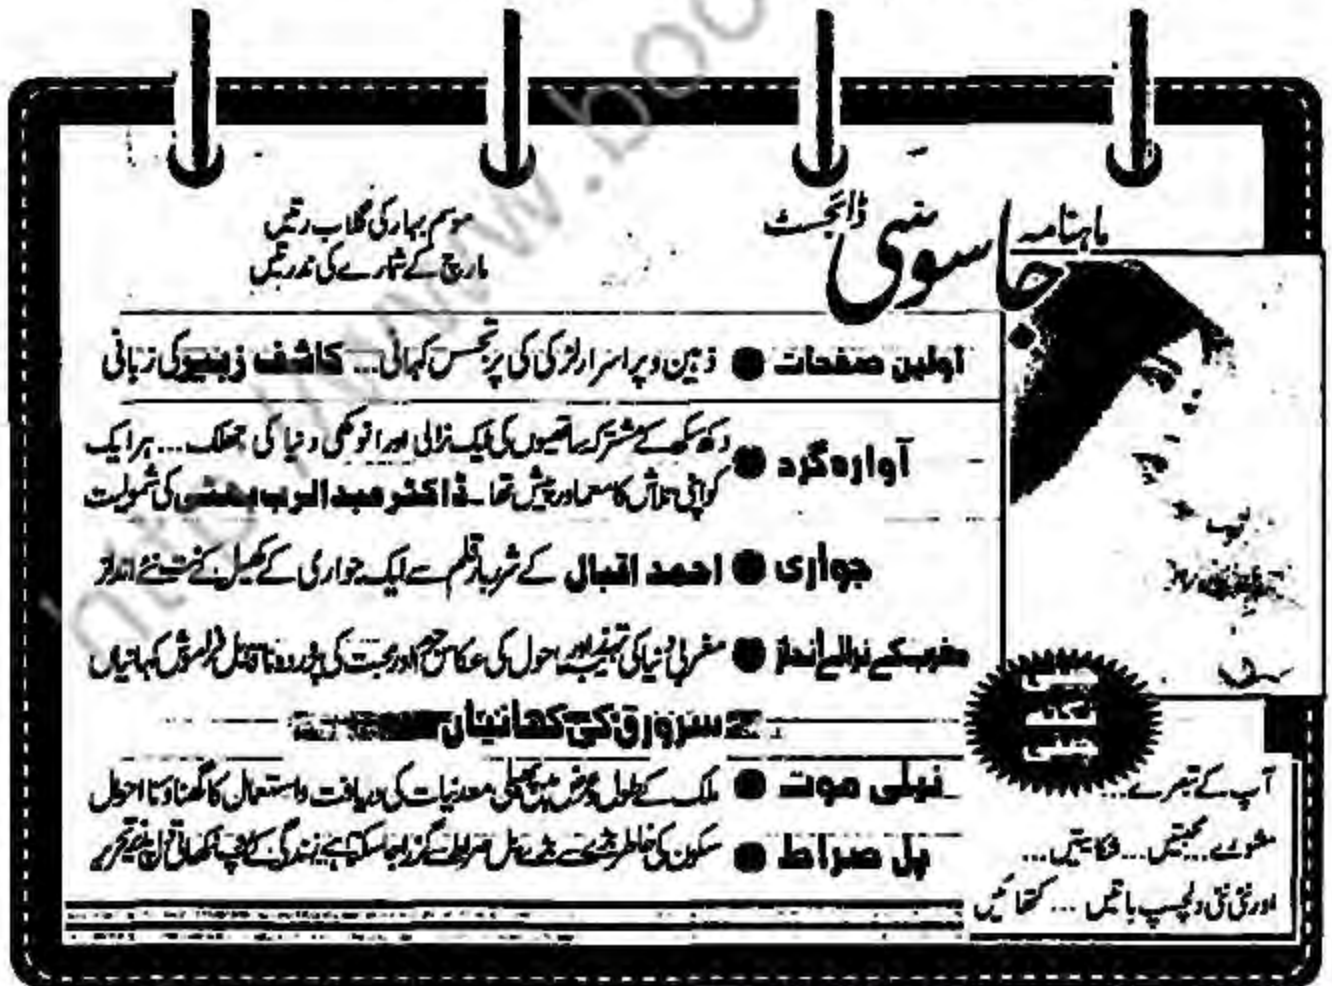 ماہنامہ
جاسوسی ڈائجسٹ
موسم بہار کی گلاب رتیں
مارچ کے شمارے کی ندرتیں
اولین صفحات ● ذہین و پراسرار لڑکی کی پرتجسس کہانی... کاشف زبیر کی زبانی
آوارہ گرد ● دکھ سکھ کے مشترکہ ساتھیوں کی ایک نرالی اور انوکھی دنیا کی جھلک... ہر ایک
کو اپنی تلاش کا معما درپیش تھا۔ ڈاکٹر عبدالرب بھٹی کی شمولیت
جواری ● احمد اقبال کے شہ قلم سے ایک جواری کے کھیل کے نت نئے انداز
مغرب کے نرالے انداز ● مغربی دنیا کی تہذیب اور ماحول کی عکاس جرم اور محبت کی ناقابل فراموش کہانیاں
سرورق کی کہانیاں
نیلی موت ● ملک کے طول و عرض میں پھیلی معدنیات کی دریافت و استعمال کا گھناؤنا احوال
پل صراط ● سکون کی خاطر پل صراط سے گزرا جا سکتا ہے زندگی کے تحریر
چینی
نکتہ
چینی
آپ کے تبصرے...
مشورے... محبتیں... شکایتیں...
اور نئی نئی دلچسپ باتیں... کتھائیں
http://www.boo